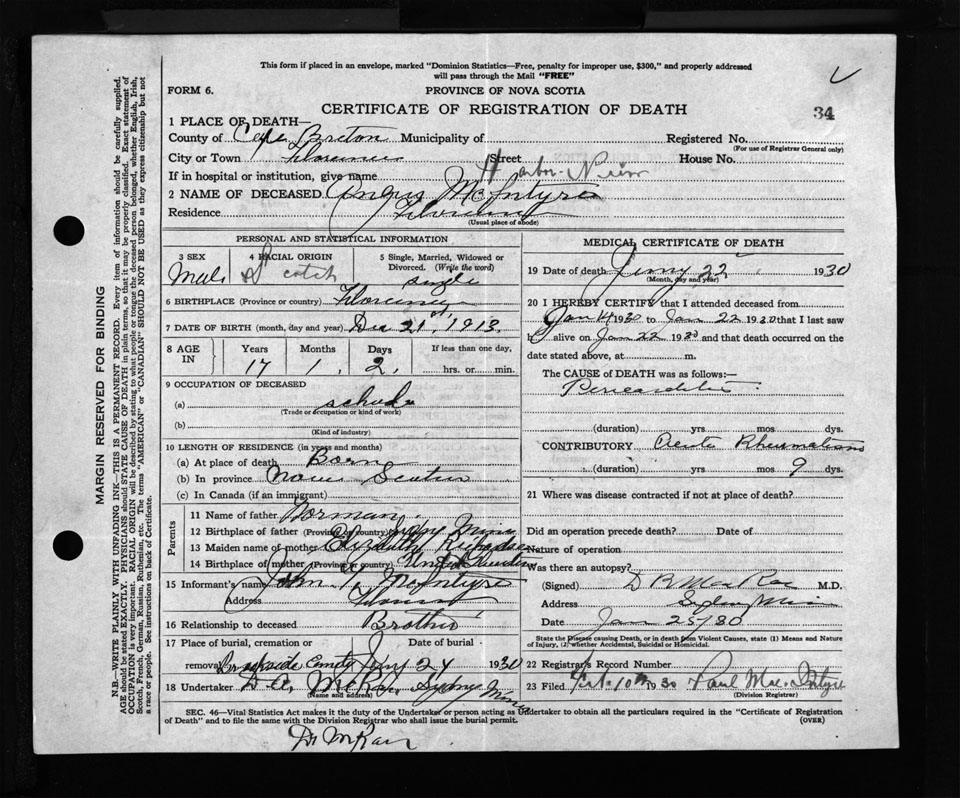 This form if placed in an envelope, marked "Dominion Statistics—Free, penalty for improper use, $300," and properly addressed
will pass through the Mail "FREE"
FORM 6. PROVINCE OF NOVA SCOTIA
CERTIFICATE OF REGISTRATION OF DEATH 34
1 PLACE OF DEATH—
County of Cape Breton Municipality of Registered No.
(For use of Registrar General only)
City or Town Florence Street House No.
If in hospital or institution, give name
2 NAME OF DECEASED Angus McIntyre
Residence Florence
(Usual place of abode)
PERSONAL AND STATISTICAL INFORMATION
3 SEX 4 RACIAL ORIGIN 5 Single, Married, Widowed or Divorced. (Write the word)
Male Scotch single
6 BIRTHPLACE (Province or country) Florence
7 DATE OF BIRTH (month, day and year) Dec 21st 1913
8 AGE IN Years Months Days If less than one day,
17 1 2 hrs. or min.
9 OCCUPATION OF DECEASED
(a) school
(Trade or occupation or kind of work)
(b)
(Kind of industry)
10 LENGTH OF RESIDENCE (in years and months)
(a) At place of death Born
(b) In province Nova Scotia
(c) In Canada (if an immigrant)
Parents
11 Name of father Norman
12 Birthplace of father (Province or country) Sydney Mines
13 Maiden name of mother Elizabeth Richardson
14 Birthplace of mother (Province or country) United States
15 Informant's name John A. McIntyre
Address Florence
16 Relationship to deceased Brother
17 Place of burial, cremation or Date of burial
removal Brookside Cemetery Jany 24 1930
18 Undertaker D A. McRae. Sydney Mines
(Name and address)
MEDICAL CERTIFICATE OF DEATH
19 Date of death Jany 22 1930
(Month, day and year)
20 I HEREBY CERTIFY that I attended deceased from
Jan 14 1930 to Jan 22 1930 that I last saw
h alive on Jan 22 1930 and that death occurred on the
date stated above, at m.
The CAUSE of DEATH was as follows:—
Pericarditis
(duration) yrs mos dys.
CONTRIBUTORY Acute Rheumatism
(duration) yrs mos 9 dys.
21 Where was disease contracted if not at place of death?
Did an operation precede death? Date of
Nature of operation
Was there an autopsy?
(Signed) D R MacRae M.D.
Address Sydney Mines
Date Jan 25/30
State the Disease causing Death, or in death from Violent Causes, state (1) Means and Nature
of Injury, (2) whether Accidental, Suicidal or Homicidal.
22 Registrar's Record Number
23 Filed Feb. 10th 1930 Paul MacIntyre
(Division Registrar)
SEC. 46—Vital Statistics Act makes it the duty of the Undertaker or person acting as Undertaker to obtain all the particulars required in the "Certificate of Registration
of Death" and to file the same with the Division Registrar who shall issue the burial permit. (OVER)
Dr McRae
MARGIN RESERVED FOR BINDING
N.B.—WRITE PLAINLY WITH UNFADING INK—THIS IS A PERMANENT RECORD. Every item of information should be carefully supplied.
AGE should be stated EXACTLY. PHYSICIANS should STATE CAUSE OF DEATH in plain terms, so that it may be properly classified. Exact statement of
OCCUPATION is very important. RACIAL ORIGIN will be described by stating to what people or tongue the deceased person belonged, whether English, Irish,
Scotch, French, German, Russian, Ruthenian, etc. The terms "AMERICAN" or "CANADIAN" SHOULD NOT BE USED as they express citizenship but not
a race or people. See instructions on back of Certificate.